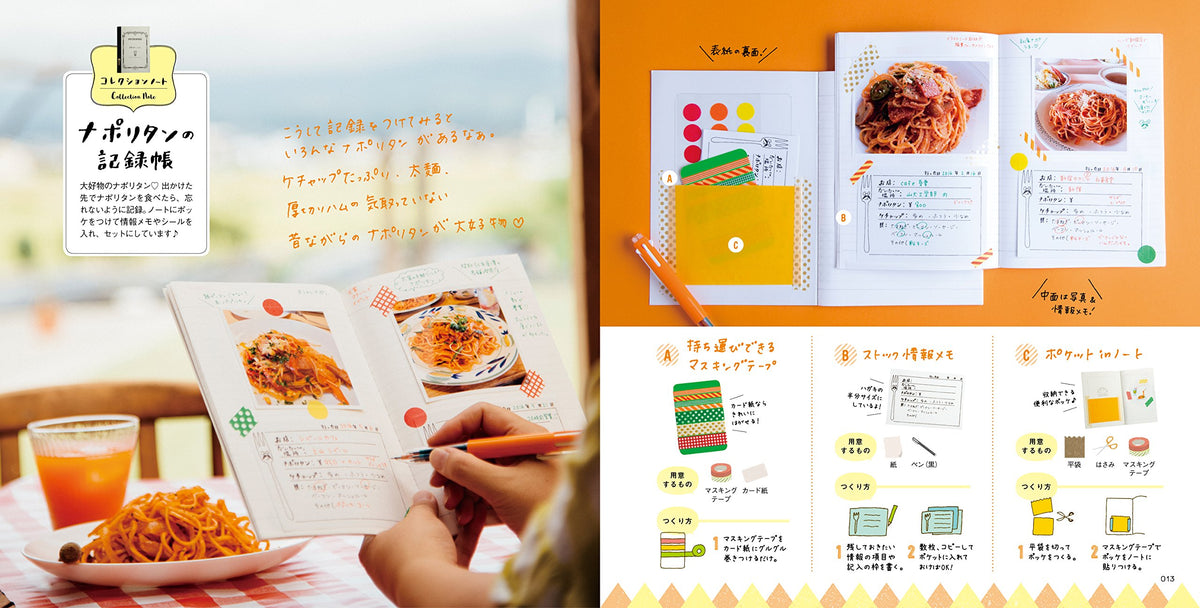 コレクションノート
Collection Note
ナポリタンの
記録帳
大好物のナポリタン♡ 出かけた
先でナポリタンを食べたら、忘
れないように記録。ノートにポッ
ケをつけて情報メモやシールを
入れ、セットにしています♪
こうして記録をつけてみると
いろんなナポリタンがあるなあ。
ケチャップたっぷり、太麺、
厚切りハムの気取っていない
昔ながらのナポリタンが大好物♡
表紙の裏面!
A
B
C
お店: cafe
ナポリタン: ¥800
ナポリタン: ¥
中面は写真&
情報メモ!
A 持ち運びできる
マスキングテープ
カード紙なら
きれいに
はがせる!
用意
するもの
マスキング
テープ
カード紙
つくり方
1 マスキングテープを
カード紙にグルグル
巻きつけるだけ。
B ストック情報メモ
ハガキの
半分サイズに
しているよ!
用意
するもの
紙
ペン(黒)
つくり方
1 残しておきたい
情報の項目や
記入の枠を書く。
2 数枚、コピーして
ポケットに入れて
おけばOK!
C ポケットinノート
収納できる
便利なポッケ♪
用意
するもの
平袋
はさみ
マスキング
テープ
つくり方
1 平袋を切って
ポッケをつくる。
2 マスキングテープで
ポッケをノートに
貼りつける。
013